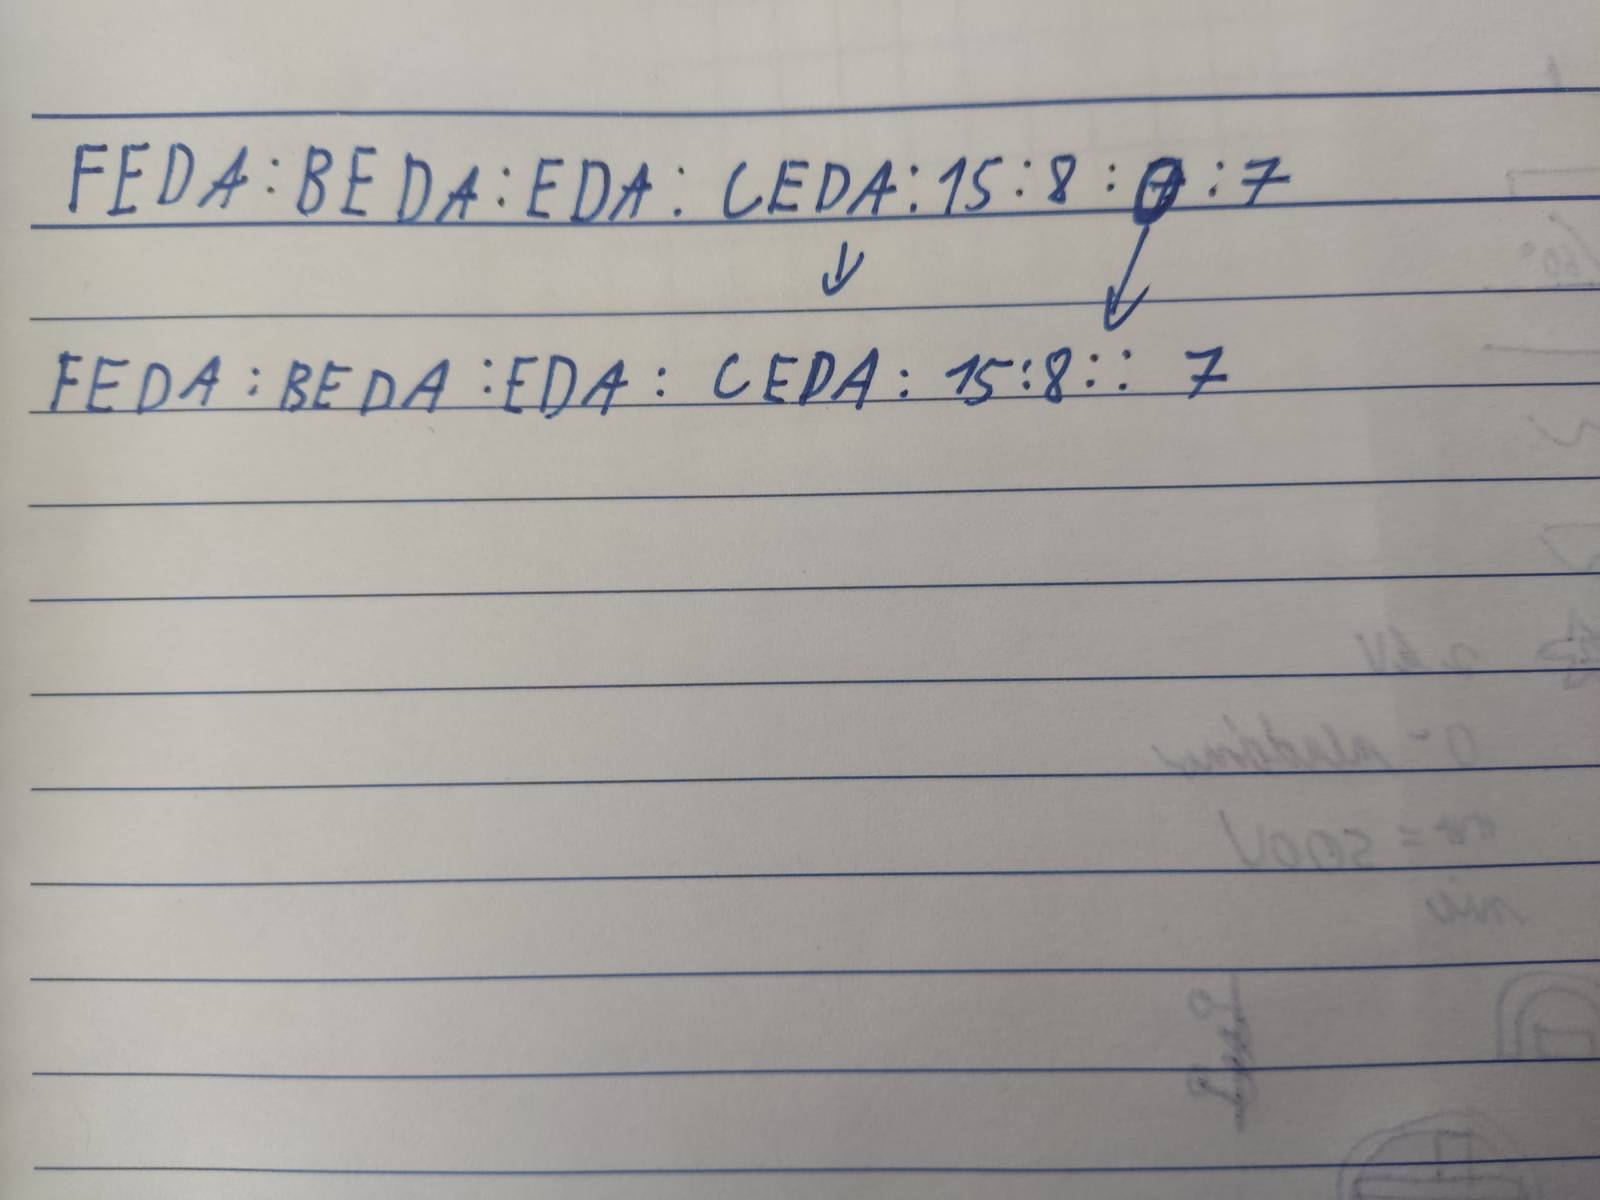 FEDA:BEDA:EDA:CEDA:15:8:0:7
FEDA:BEDA:EDA:CEDA:15:8::7